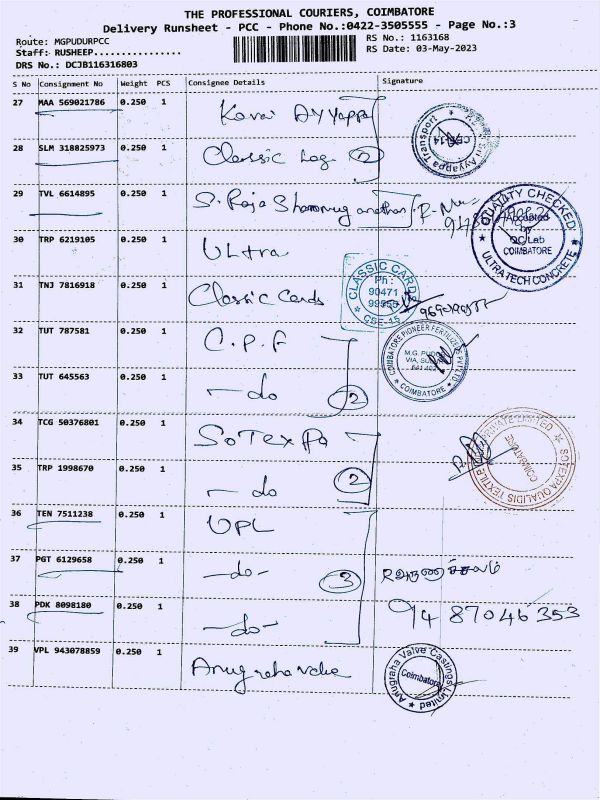 THE PROFESSIONAL COURIERS, COIMBATORE
Delivery Runsheet - PCC - Phone No.:0422-3505555 - Page No.:3
Route: MGPUDURPCC
RS No.: 1163168
Staff: RUSHEEP................
RS Date: 03-May-2023
DRS No.: DCJB116316803
S No Consignment No Weight PCS Consignee Details Signature
27 MAA 569021786 0.250 1 Kovai Ayyappa
28 SLM 318825973 0.250 1 Classic Log 2
Sri Ayyappa Transport
CBE-14
29 TVL 6614895 0.250 1 S. Raja
30 TRP 6219105 0.250 1 ULtra
QUALITY CHECKED
Accepted
by
QC Lab
COIMBATORE
ULTRA TECH CONCRETE
31 TNJ 7816918 0.250 1 Classic Cards
CLASSIC CARDS
Ph :
90471
CBE-15
32 TUT 787581 0.250 1 C.P.F
COIMBATORE PIONEER FERTILIZERS PVT LTD
M.G. PUDUR
641 402
COIMBATORE
33 TUT 645563 0.250 1 - do 2
34 TCG 50376801 0.250 1 SoTexPa
SOTEXPA QUALIDIS TEXTILE PRIVATE LIMITED
COIMBATORE
35 TRP 1998670 0.250 1 - do 2
36 TEN 7511238 0.250 1 UPL
37 PGT 6129658 0.250 1 -do- 3
38 PDK 8098180 0.250 1 -do-
94 87046353
39 VPL 943078859 0.250 1 Anugraha valve
Anugraha Valve Castings Limited
Coimbatore